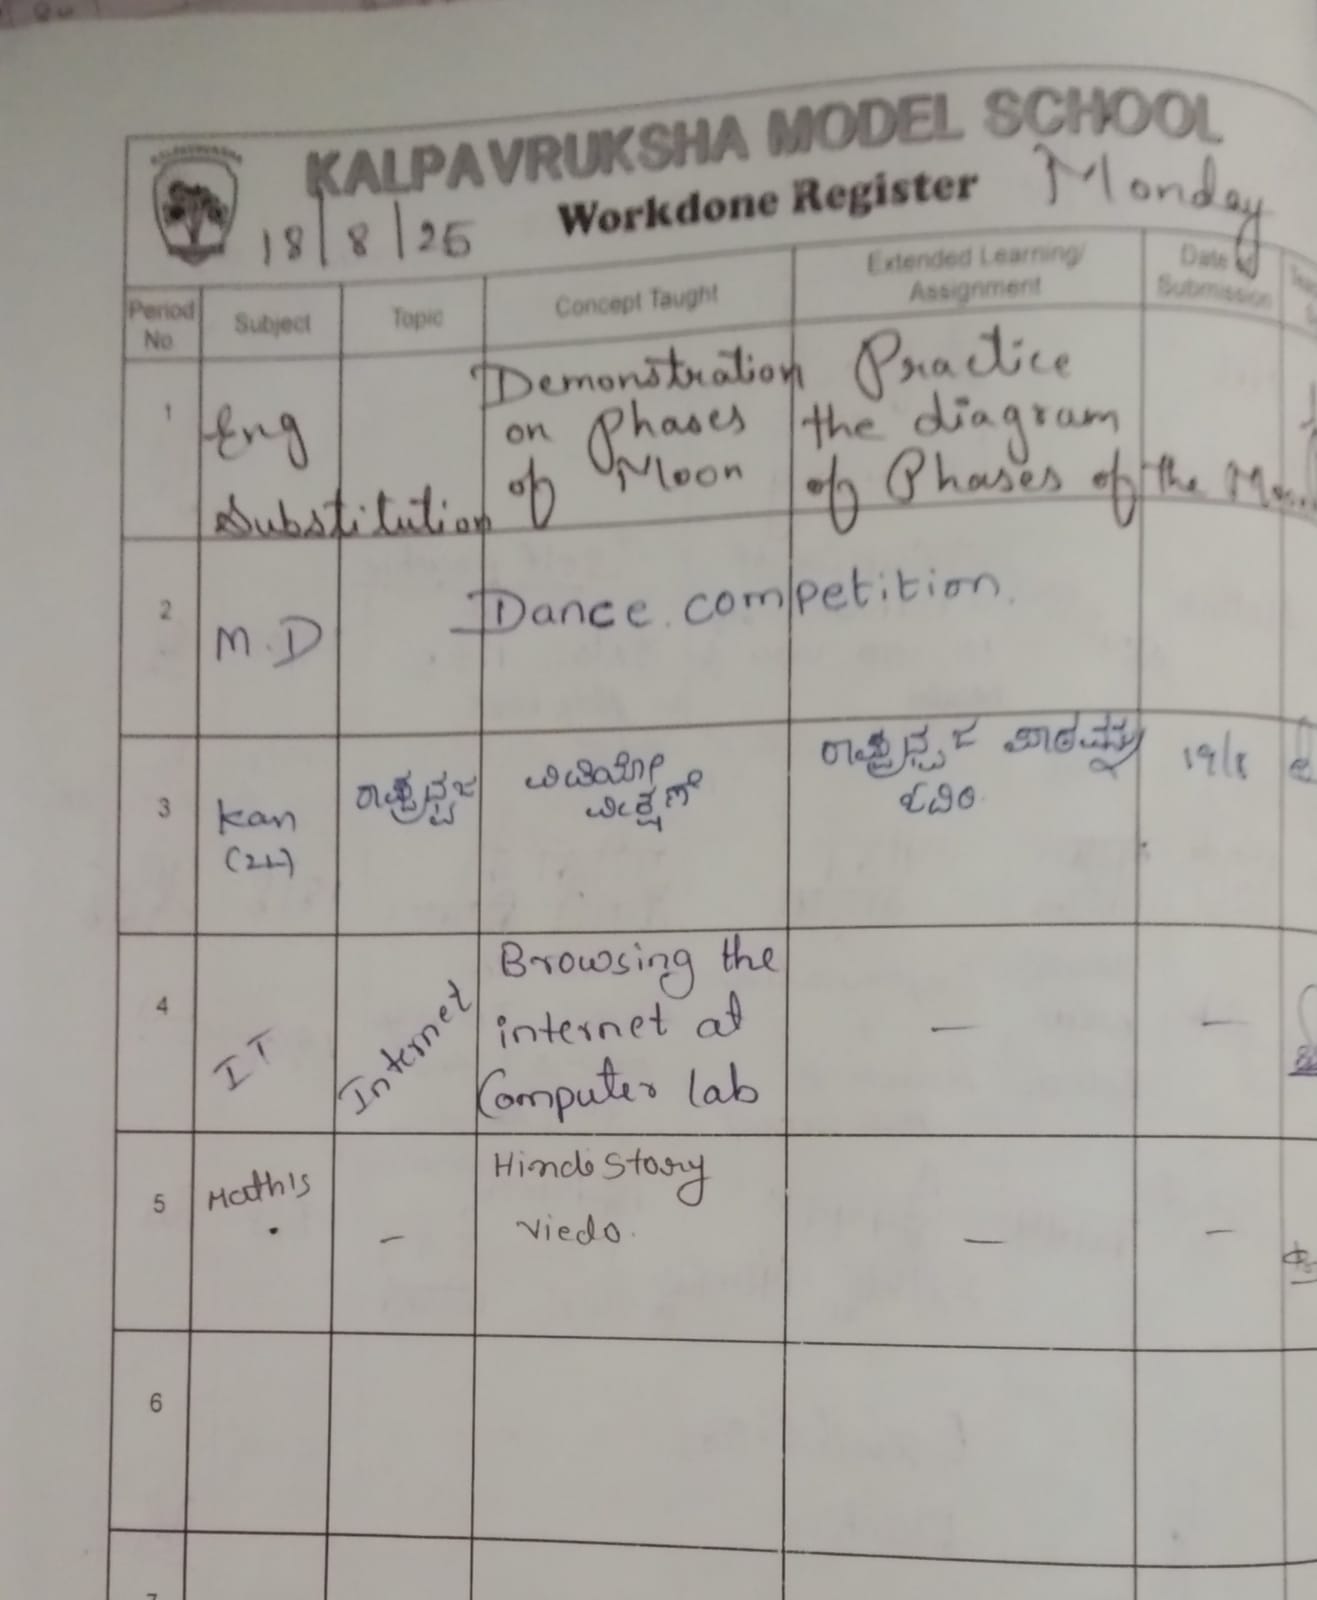 KALPAVRUKSHA MODEL SCHOOL
18/8/25 Workdone Register Monday
Period No Subject Topic Concept Taught Extended Learning/ Assignment Date Submission
1 Eng Substitution
Demonstration
on Phases
of Moon
Practice
the diagram
of Phases of the
2 M.D Dance competition.
3 Kan
(2L)
ರಾಷ್ಟ್ರಧ್ವಜ
ವಿಡಿಯೋ
ವೀಕ್ಷಣೆ
ರಾಷ್ಟ್ರಧ್ವಜ
19/8
4 IT Internet
Browsing the
internet at
Computer lab
— —
5 Maths –
Hindi Story
Viedo.
— –
6